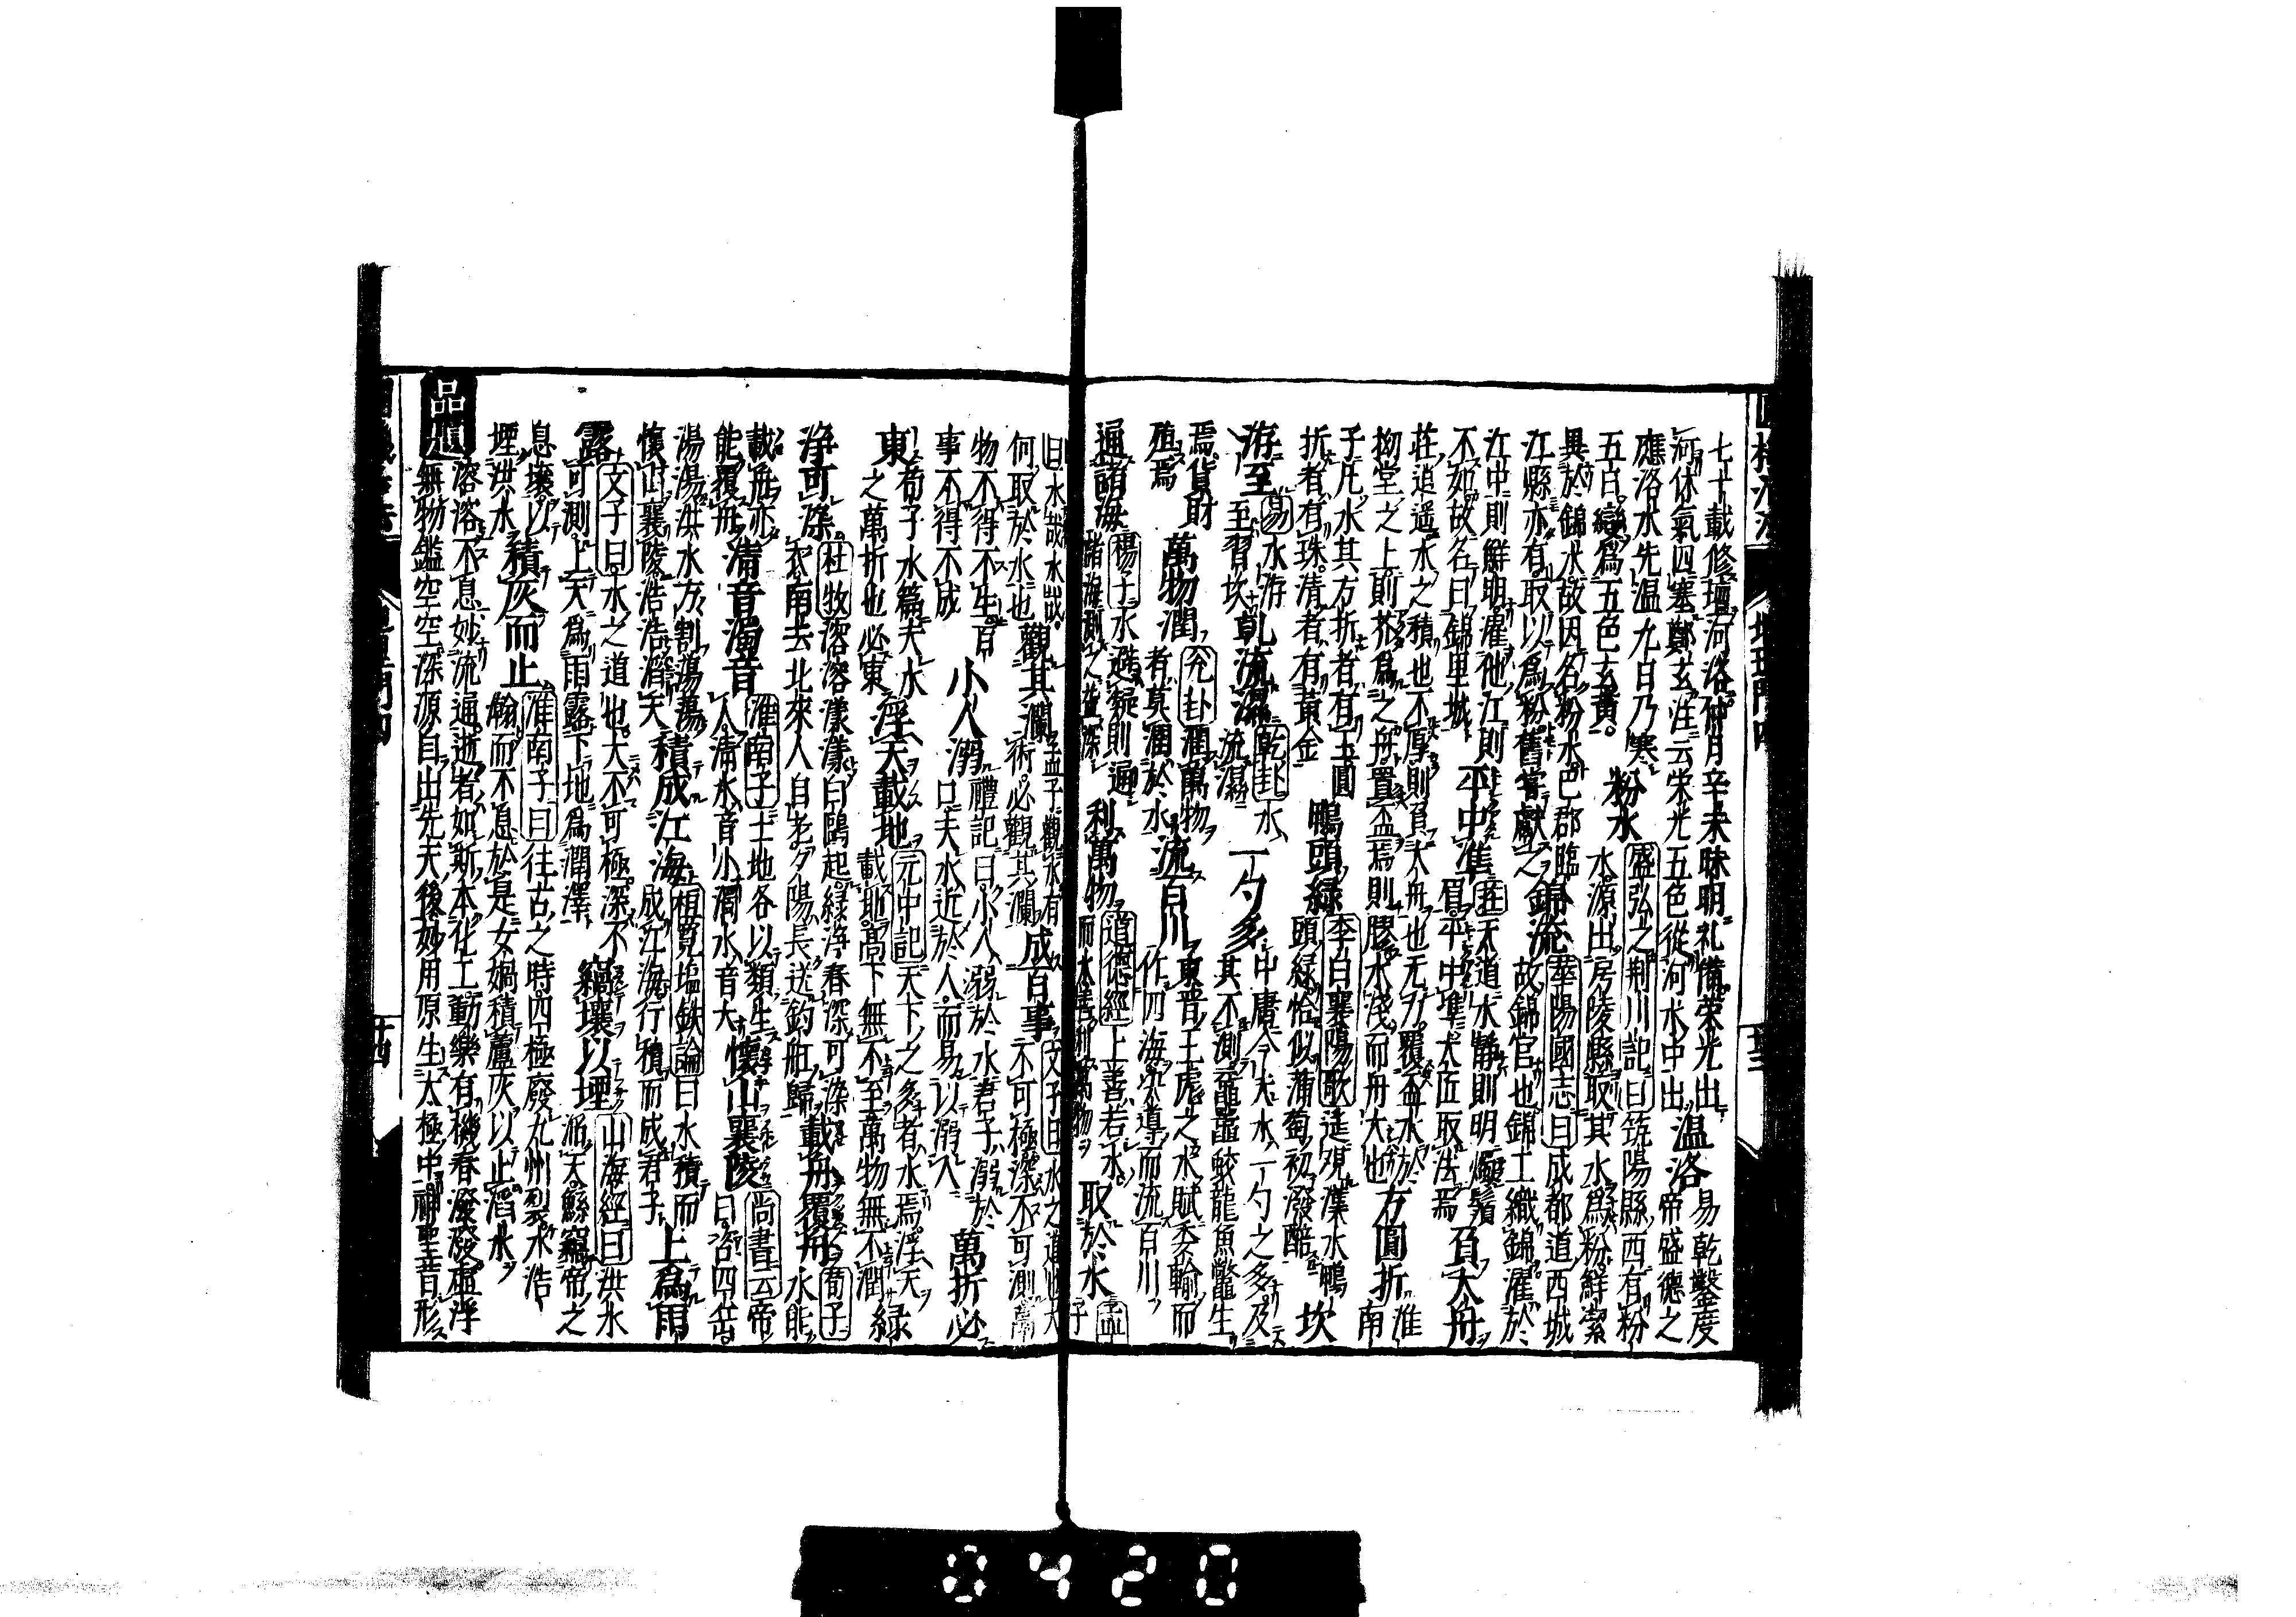 七十載修壇河洛仲月辛未昧明礼備栄光出
河休氣四塞鄭玄注云栄光五色從河水中出
温洛
易乾鑿度
帝盛德之
應洛水先温九日乃寒
五日變為五色玄黄。
粉水
盛弘之荆川記曰筑陽縣西有粉
水源出房陵縣取其水為粉鮮潔
異於錦水故因名粉水巴郡臨
江縣亦有取以為粉舊嘗獻之
錦流
華陽國志曰成都道西城
故錦官也錦土織錦濯於
江中則鮮明濯他江則
不如故名曰錦里城
平中準
荘天道水静則明燭鬚
眉平中準大匠取法焉
負大舟
荘逍遥水之積也不厚則負大舟也无力覆盃水於
拗堂之上則芥為之舟置盃焉則膠水浅而舟大也
方圓折
淮
南
子凡水其方折者有玉圓
折者有珠清者有黄金
鴨頭緑
李白襄陽歌遥覌漢水鴨
頭緑恰似蒲萄初潑醅
坎
洊至
易水洊
至習坎
乾流濕
乾卦水
流濕
一勺多
中庸今夫水一勺之多及
其不測黿鼉蛟龍魚鼈生
焉貨財
殖焉
萬物潤
兌卦潤萬物
者莫潤於水
流百川
東晋王虙之水賦委輸而
作四海宗導而流百川
遍諸海
楊子水避礙則遍
諸海測之益深
利萬物
道德經上善若水
而水善利萬物
取於水
孟
子
曰水哉水哉。
何取於水也
觀其瀾
孟子觀水有
術必觀其瀾
成百事
文子曰水之道也大
不可極深不可測萬
物不得不生百
事不得不成
小人溺
禮記曰小人溺於水君子溺於
口夫水近於人而易以溺人
萬折必
東
荀子水篇夫水
之萬折也必東
浮天載地
元中記天下之多者水焉浮天
載地高下無不至萬物無不潤
緑
浄可染
杜牧溶溶漾漾白鷗起緑浄春深可染
衣南去北來人自老夕陽長送釣舡歸
載舟覆舟
荀子
水能
載舟亦
能覆舟
清音濁音
淮南子土地各以類生
人清水音小濁水音大
懷山襄陵
尚書云帝
曰咨四岳
湯湯洪水方割蕩蕩
懷山襄陵浩浩滔天
積成江海
桓寛塩鉄論曰水積而
成江海行積而成君子
上為雨
露
文子曰水之道也大不可極深不
可測上天為雨露下地為潤澤
竊壤以堙
山海經曰洪水
滔天鯀竊帝之
息壤以
堙洪水
積灰而止
淮南子曰往古之時四極廢九州裂水浩
瀚而不息於是女媧積蘆灰以止滔水
品題
溶溶不息妙流遍逝者如斯本化工動樂有機春潑潑虚浮
無物鑑空空深源自出先天後妙用原生太極中神聖昔形
廿四
0420